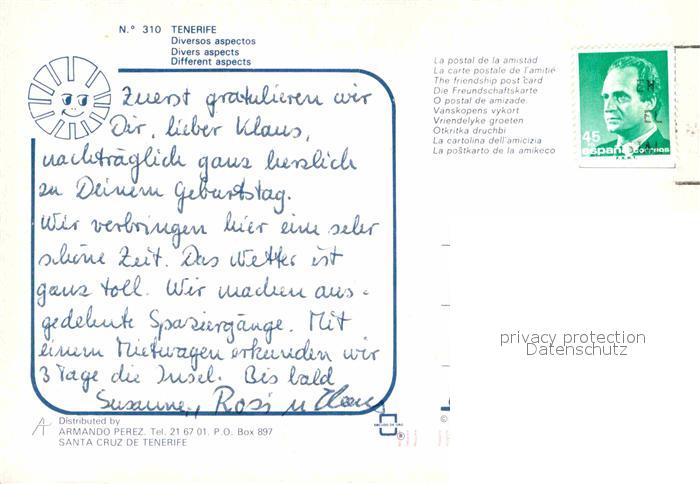 N.° 310 TENERIFE
Diversos aspectos
Divers aspects
Different aspects
Zuerst gratulieren wir
Dir, lieber Klaus,
nachträglich ganz herzlich
zu Deinem Geburtstag.
Wir verbringen hier eine sehr
schöne Zeit. Das Wetter ist
ganz toll. Wir machen aus-
gedehnte Spaziergänge. Mit
einem Mietwagen erkunden wir
3 Tage die Insel. Bis bald
Susanne, Rosi u.
Distributed by
ARMANDO PEREZ. Tel. 21 67 01. P.O. Box 897
SANTA CRUZ DE TENERIFE
La postal de la amistad
La carte postale de l'amitié
The friendship post card
Die Freundschaftskarte
O postal de amizade
Vanskopens vykort
Vriendelyke groeten
Otkritka druchbi
La cartolina dell'amicizia
La poŝtkarto de la amikeco
45
españa correos
F.N.M.T.
privacy protection
Datenschutz
®
©